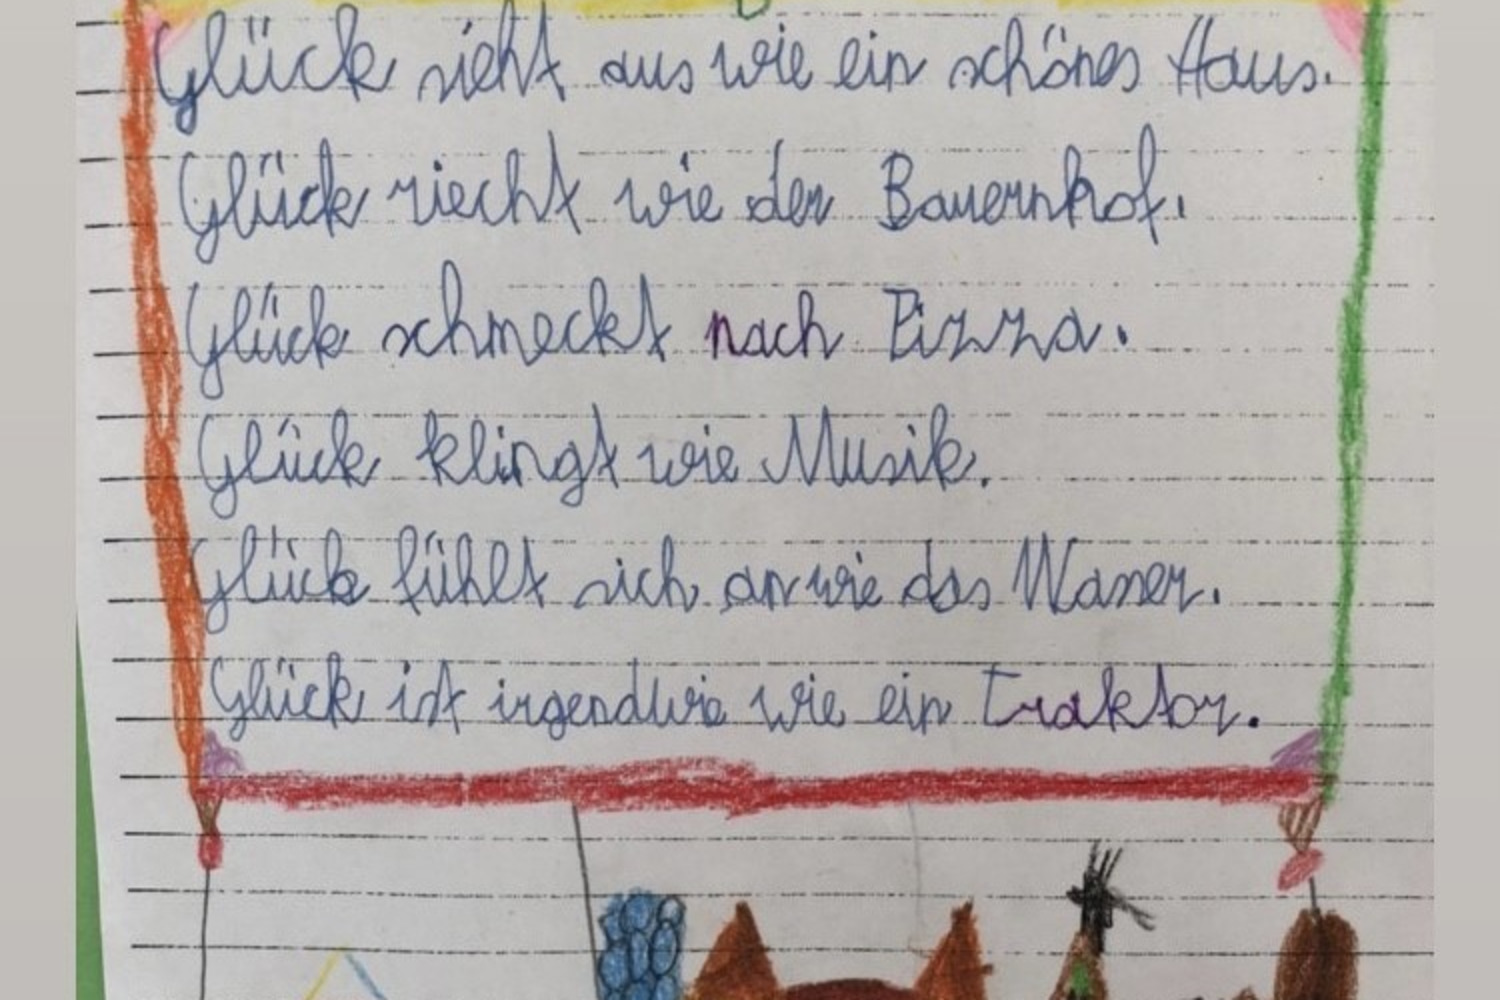 Glück sieht aus wie ein schönes Haus.
Glück riecht wie der Bauernhof.
Glück schmeckt nach Pizza.
Glück klingt wie Musik.
Glück fühlt sich an wie das Wasser.
Glück ist irgendwie wie ein Traktor.